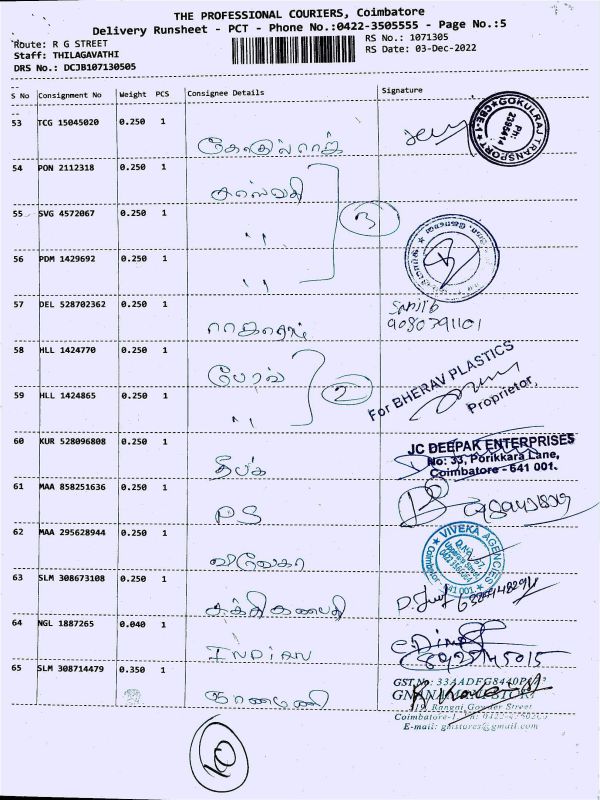 THE PROFESSIONAL COURIERS, Coimbatore
Delivery Runsheet - PCT - Phone No.:0422-3505555 - Page No.:5
Route: R G STREET
RS No.: 1071305
Staff: THILAGAVATHI
RS Date: 03-Dec-2022
DRS No.: DCJB107130505
S No Consignment No Weight PCS Consignee Details Signature
53 TCG 15045020 0.250 1
GOKULRAJ TRANSPORT
Ph: 2395414
CBE-1
54 PON 2112318 0.250 1 சரஸ்வதி
55 SVG 4572067 0.250 1 ,,
3
56 PDM 1429692 0.250 1 ,,
57 DEL 528702362 0.250 1
9080791101
58 HLL 1424770 0.250 1
For BHERAV PLASTICS
Proprietor,
59 HLL 1424865 0.250 1 ,,
2
60 KUR 528096808 0.250 1 தீபக்
JC DEEPAK ENTERPRISES
No: 33, Porikkara Lane,
Coimbatore - 641 001.
61 MAA 858251636 0.250 1 PS
62 MAA 295628944 0.250 1 விவேகா
VIVEKA AGENCIES
Coimbatore - 641 001
63 SLM 308673108 0.250 1 சக்திகணபதி
64 NGL 1887265 0.040 1 INDIAN
65 SLM 308714479 0.350 1 ஞானமணி
GST.No: 33AADFG8440P
GNANAMANI STORE
Rangai Gowder Street
Coimbatore-1.
E-mail: gmstores@gmail.com
10